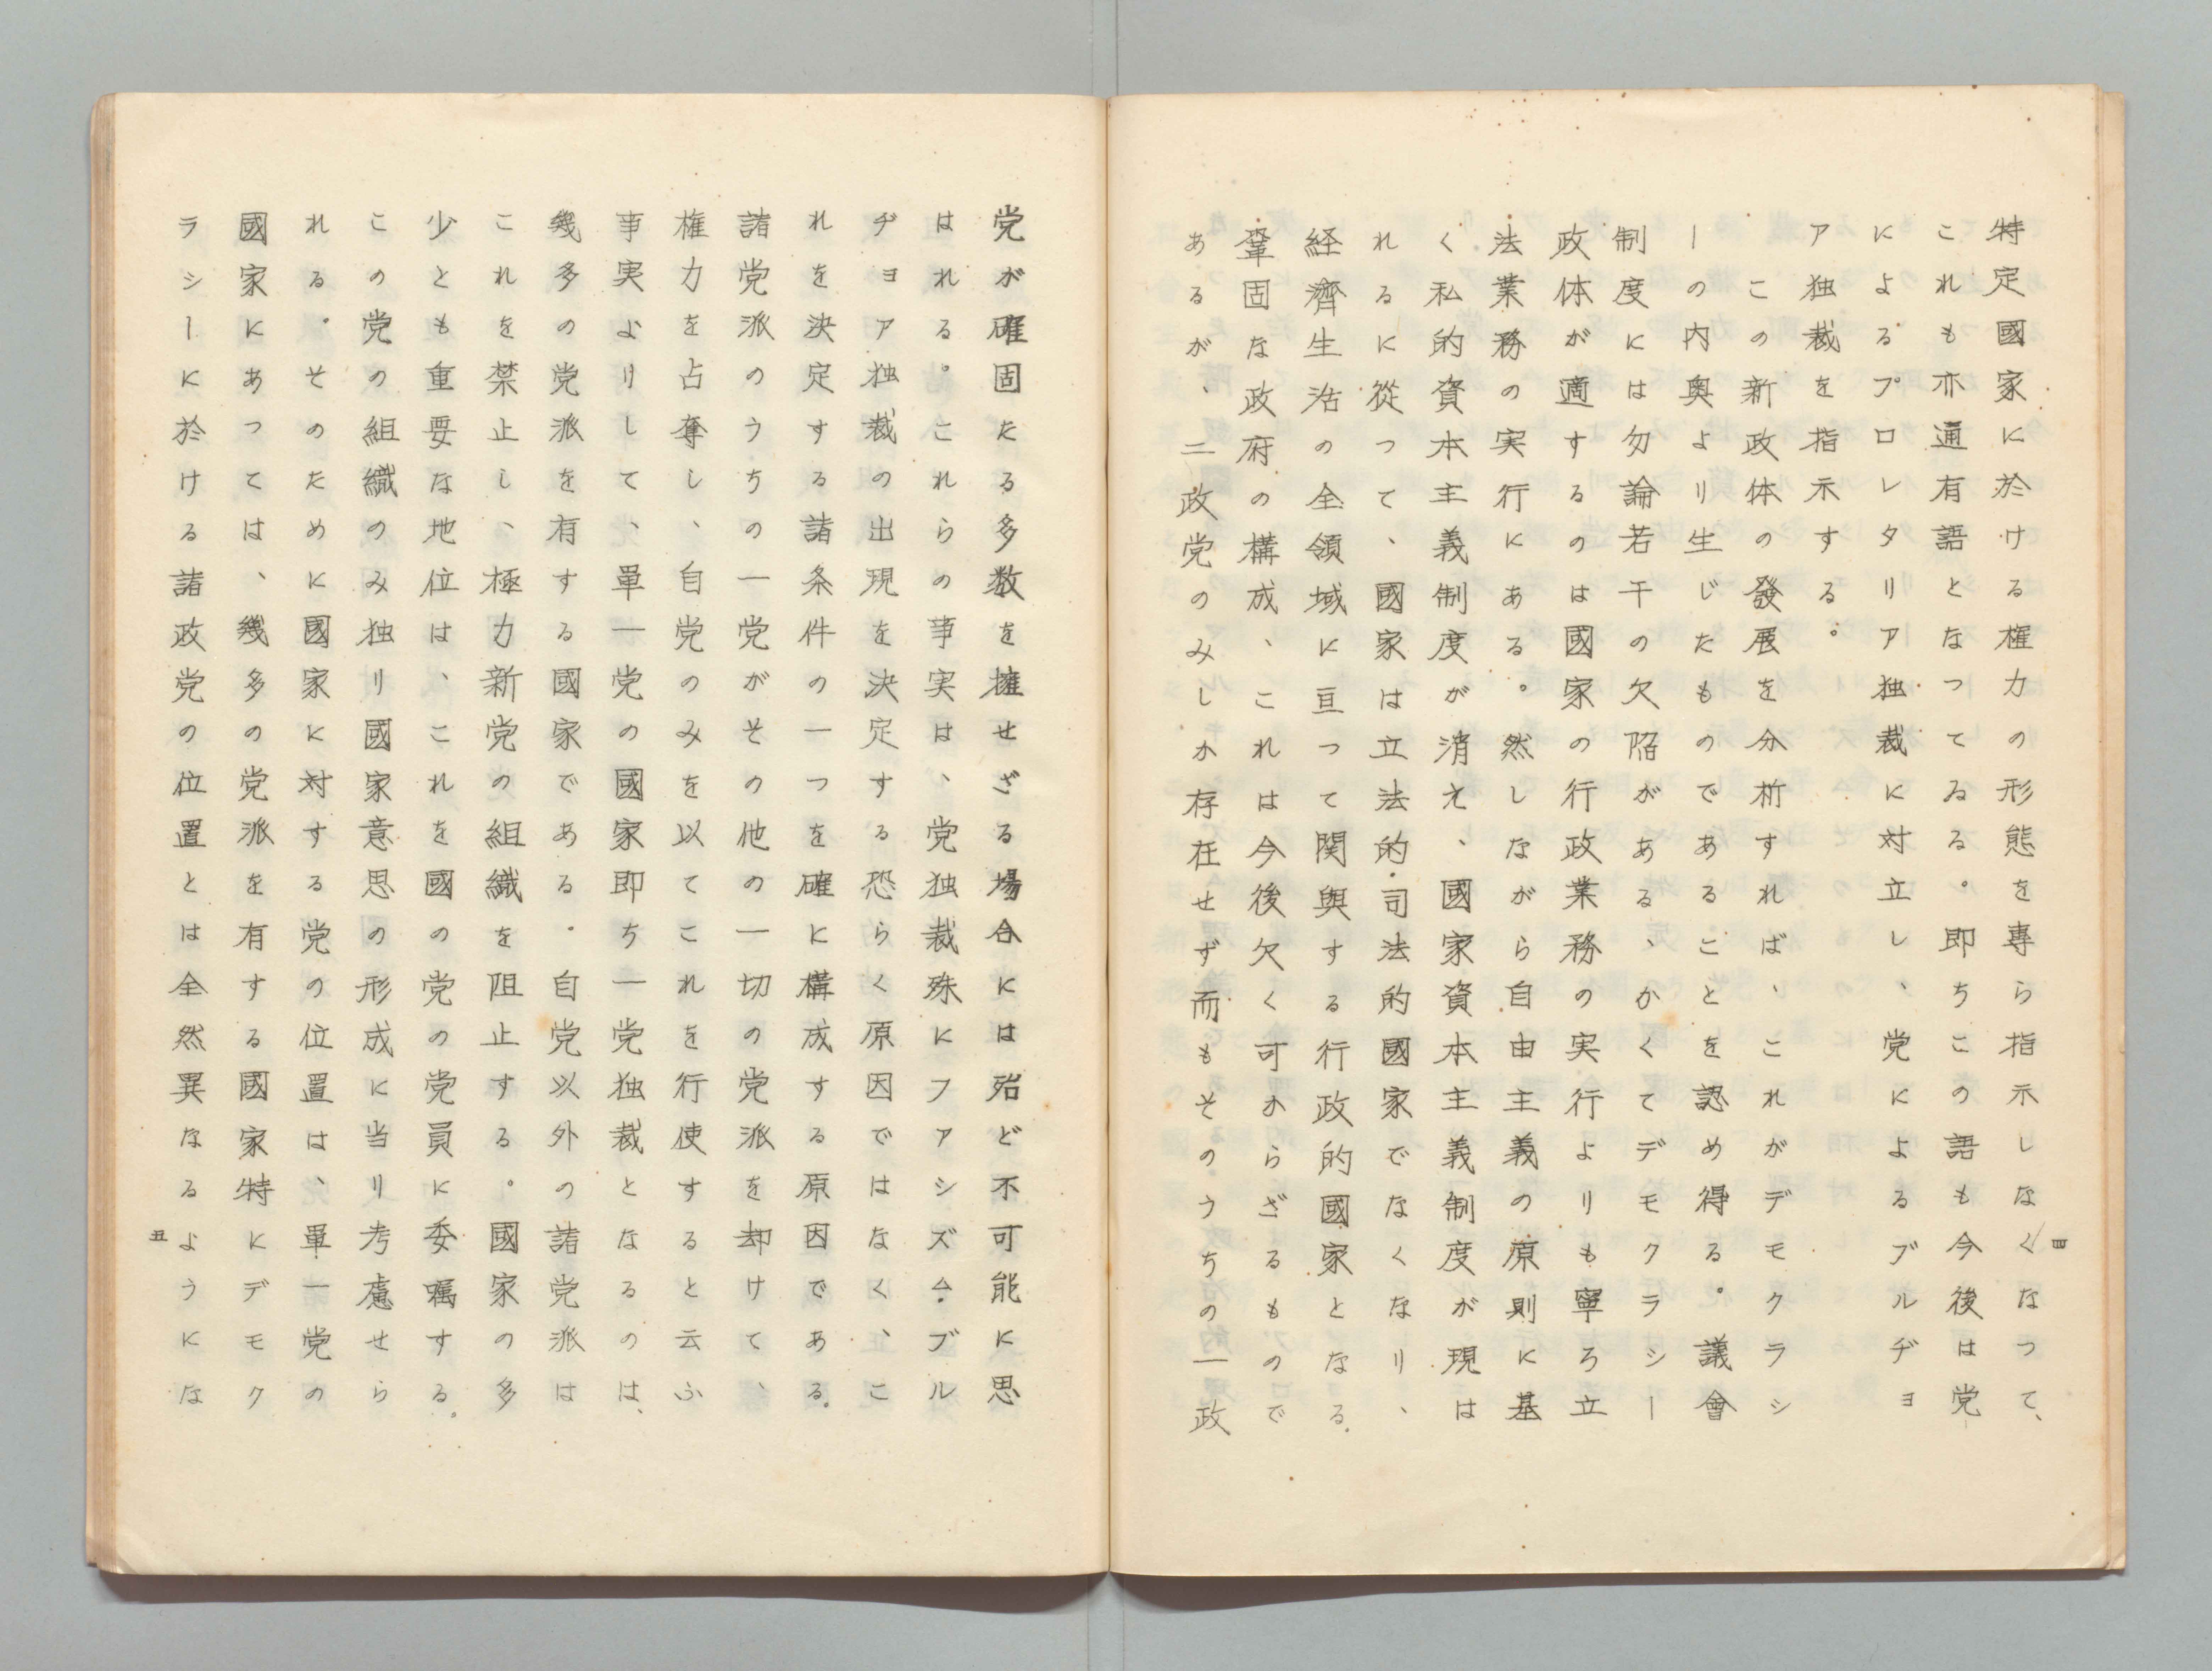 特定國家に於ける権力の形態を専ら指示しなくなつて、
これも亦通有語となつてゐる。即ちこの語も今後は党
によるプロレタリア独裁に対立し、党によるブルヂョ
ア独裁を指示する。
この新政体の發展を分析すれば、これがデモクラシ
ーの内奥より生じたものであることを認め得る。議會
制度には勿論若干の欠陥がある、かくてデモクラシー
政体が適するのは國家の行政業務の実行よりも寧ろ立
法業務の実行にある。然しながら自由主義の原則に基
く私的資本主義制度が消え、國家資本主義制度が現は
れるに從つて、國家は立法的・司法的國家でなくなり、
経濟生活の全領域に亘つて関與する行政的國家となる。
鞏固な政府の構成、これは今後欠く可からざるもので
あるが、二政党のみしか存在せず而もそのうちの一政
四
党が確固たる多数を擁せざる場合には殆ど不可能に思
はれる。これらの事実は、党独裁殊にファシズム・ブル
ヂョア独裁の出現を決定する恐らく原因ではなく、こ
れを決定する諸条件の一つを確に構成する原因である。
諸党派のうちの一党がその他の一切の党派を却けて、
権力を占奪し、自党のみを以てこれを行使すると云ふ
事実よりして、單一党の國家即ち一党独裁となるのは、
幾多の党派を有する國家である。自党以外の諸党派は
これを禁止し、極力新党の組織を阻止する。國家の多
少とも重要な地位は、これを國の党の党員に委囑する。
この党の組織のみ独り國家意思の形成に当り考慮せら
れる。そのために國家に対する党の位置は、單一党の
國家にあつては、幾多の党派を有する國家特にデモク
ラシーに於ける諸政党の位置とは全然異なるようにな
五